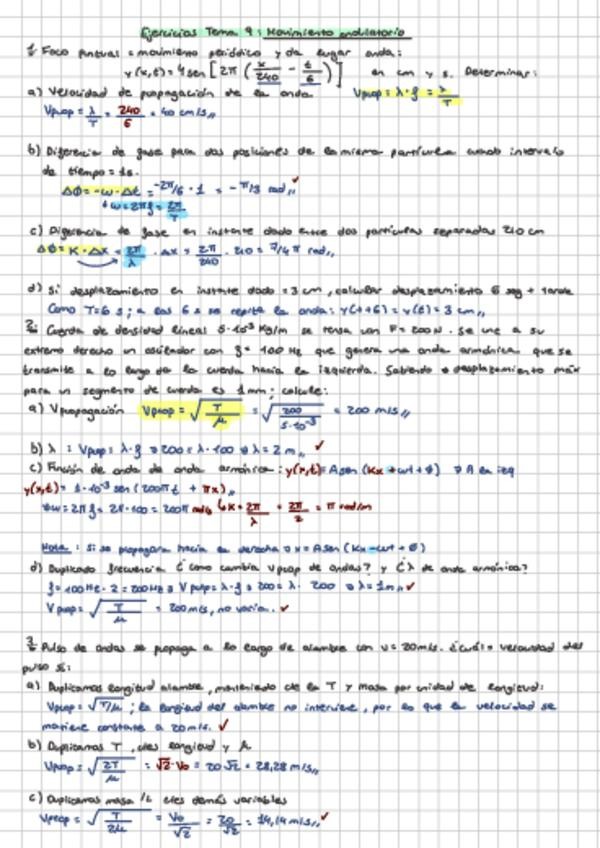 Ejercicios Tema 9: Movimiento ondulatorio
1. Foco puntual = movimiento periódico y da lugar onda:
y(x,t) = 4 sen [2π (x/240 - t/6)] en cm y s. Determinar:
a) Velocidad de propagación de la onda Vprop = λ·f = λ/T
Vprop = λ/T = 240/6 = 40 cm/s,,
b) Diferencia de fase para dos posiciones de la misma partícula cuando intervalo
de tiempo = 1s.
ΔΦ = -w·Δt = -2π/6 · 1 = -π/3 rad,, ✓
w = 2πf = 2π/T
c) Diferencia de fase en instante dado entre dos partículas separadas 210 cm
ΔΦ = K·Δx = 2π/λ · Δx = 2π/240 · 210 = 7/4 π rad,,
d) Si desplazamiento en instante dado = 3 cm, calcular desplazamiento 6 seg + tarde
Como T = 6 s; a los 6 s se repite la onda: y(t+6) = y(t) = 3 cm,,
2. Cuerda de densidad lineal 5·10⁻³ Kg/m se tensa con F = 200N. Se une a su
extremo derecho un oscilador con f = 100 Hz que genera una onda armónica que se
transmite a lo largo de la cuerda hacia la izquierda. Sabiendo desplazamiento máx
para un segmento de cuerda es 1 mm; calcule:
a) Vpropagación Vprop = √(T/μ) = √(200/5·10⁻³) = 200 m/s,,
b) λ: Vprop = λ·f → 200 = λ·100 → λ = 2 m,, ✓
c) Función de onda de onda armónica: y(x,t) = A sen (Kx + wt + Φ) → A la izq
y(x,t) = 1·10⁻³ sen (200πt + πx),,
w = 2πf = 2π·100 = 200π rad/s K = 2π/λ = 2π/2 = π rad/m
Nota: si se propagara hacia la derecha → x = A sen (Kx - wt + Φ)
d) Duplicado frecuencia ¿cómo cambia vprop de ondas? y ¿λ de onda armónica?
f = 100 Hz · 2 = 200 Hz → Vprop = λ·f → 200 = λ · 200 → λ = 1 m,, ✓
Vprop = √(T/μ) = 200 m/s, no varía. ✓
3. Pulso de ondas se propaga a lo largo de alambre con v = 20 m/s. ¿cuál = velocidad del
pulso si:
a) Duplicamos longitud alambre, manteniendo cte la T y masa por unidad de longitud:
Vprop = √T/μ; la longitud del alambre no interviene, por lo que la velocidad se
mantiene constante a 20 m/s. ✓
b) Duplicamos T, ctes longitud y μ
Vprop = √(2T/μ) = √2·Vo = 20√2 = 28,28 m/s,,
c) Duplicamos masa /L ctes demás variables
Vprop = √(T/2μ) = Vo/√2 = 20/√2 = 14,14 m/s,, ✓